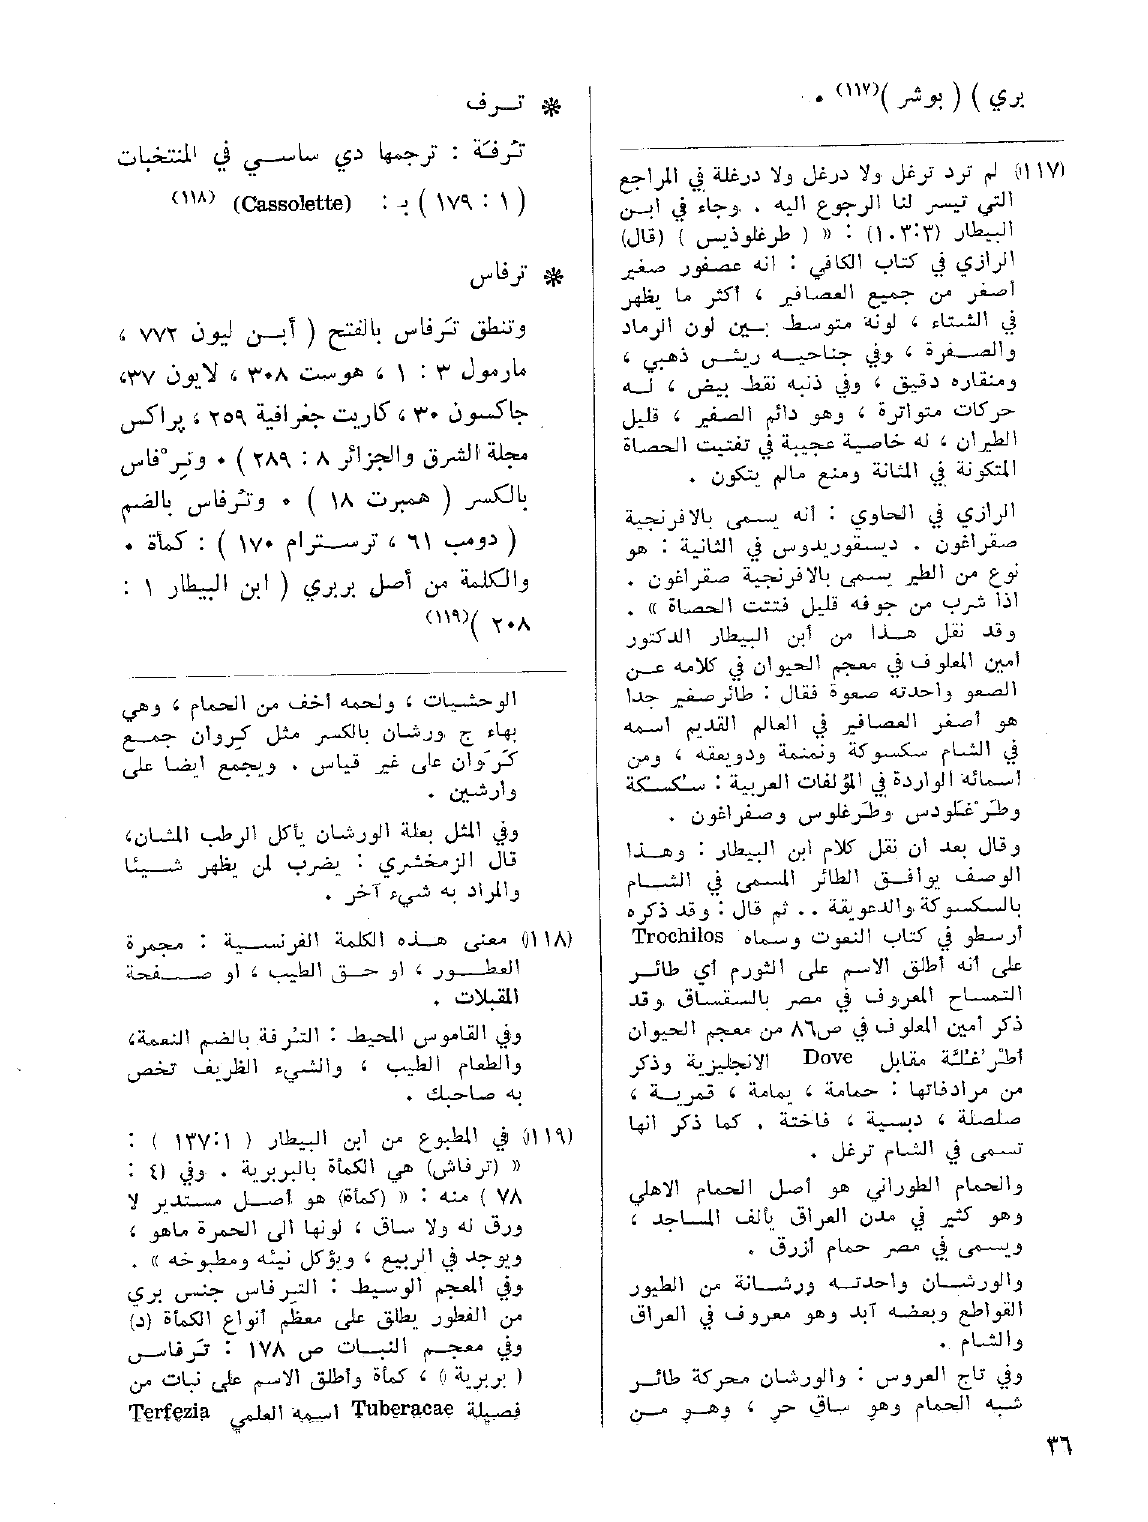 بري ) ( بوشر )(١١٧) .
(١١٧) لم ترد ترغل ولا درغل ولا درغلة في المراجع
التي تيسر لنا الرجوع اليه . وجاء في ابن
البيطار (٣:١٠٣) : « ( طرغلوذيس ) (قال)
الرازي في كتاب الكافي : انه عصفور صغير
أصغر من جميع العصافير ، أكثر ما يظهر
في الشتاء ، لونه متوسط بين لون الرماد
والصفرة ، وفي جناحيه ريش ذهبي ،
ومنقاره دقيق ، وفي ذنبه نقط بيض ، له
حركات متواترة ، وهو دائم الصفير ، قليل
الطيران ، له خاصية عجيبة في تفتيت الحصاة
المتكونة في المثانة ومنع مالم يتكون .
الرازي في الحاوي : انه يسمى بالافرنجية
صفراغون . ديسقوريدوس في الثانية : هو
نوع من الطير يسمى بالافرنجية صفراغون .
اذا شرب من جوفه قليل فتتت الحصاة » .
وقد نقل هذا من أبن البيطار الدكتور
أمين المعلوف في معجم الحيوان في كلامه عن
الصعو واحدته صعوة فقال : طائر صغير جدا
هو أصغر العصافير في العالم القديم اسمه
في الشام سكسوكة ونمنمة ودويعقه ، ومن
أسمائه الواردة في المؤلفات العربية : سكسكة
وطرَغلودس وطرغلوس وصفراغون .
وقال بعد ان نقل كلام ابن البيطار : وهذا
الوصف يوافق الطائر المسمى في الشام
بالسكسوكة والدعويقة .. ثم قال : وقد ذكره
أرسطو في كتاب النعوت وسماه Trochilos
على أنه أطلق الاسم على الثورم أي طائر
التمساح المعروف في مصر بالسقساق وقد
ذكر أمين المعلوف في ص٨٦ من معجم الحيوان
أطرُغُلّة مقابل Dove الانجليزية وذكر
من مرادفاتها : حمامة ، يمامة ، قمرية ،
صلصلة ، دبسية ، فاختة . كما ذكر انها
تسمى في الشام ترغل .
والحمام الطوراني هو أصل الحمام الاهلي
وهو كثير في مدن العراق يألف المساجد ،
ويسمى في مصر حمام أزرق .
والورشان واحدته ورشانة من الطيور
القواطع وبعضه آبد وهو معروف في العراق
والشام .
وفي تاج العروس : والورشان محركة طائر
شبه الحمام وهو ساق حر ، وهو من
❋ ترف
تُرفَة : ترجمها دي ساسي في المنتخبات
( ١ : ١٧٩ ) بـ : (Cassolette) (١١٨)
❋ ترفاس
وتنطق تَرفاس بالفتح ( أبن ليون ٧٧٢ ،
مارمول ٣ : ١ ، هوست ٣٠٨ ، لايون ٣٧،
جاكسون ٣٠ ، كاريت جغرافية ٢٥٩ ، پراكس
مجلة الشرق والجزائر ٨ : ٢٨٩ ) . وتِرْفاس
بالكسر ( همبرت ١٨ ) . وتُرفاس بالضم
( دومب ٦١ ، ترسترام ١٧٠ ) : كمأة .
والكلمة من أصل بربري ( ابن البيطار ١ :
٢٠٨ )(١١٩)
الوحشيات ، ولحمه أخف من الحمام ، وهي
بهاء ج ورشان بالكسر مثل كروان جمع
كَرَوان على غير قياس . ويجمع ايضا على
وارشين .
وفي المثل بعلة الورشان يأكل الرطب المشان،
قال الزمخشري : يضرب لمن يظهر شيئا
والمراد به شيء آخر .
(١١٨) معنى هذه الكلمة الفرنسية : مجمرة
العطور ، او حق الطيب ، او صفحة
المقبلات .
وفي القاموس المحيط : التُرفة بالضم النعمة،
والطعام الطيب ، والشيء الظريف تخص
به صاحبك .
(١١٩) في المطبوع من ابن البيطار ( ١:١٣٧ ) :
« (ترفاش) هي الكمأة بالبربرية . وفي (٤ :
٧٨ ) منه : « (كمأة) هو أصل مستدير لا
ورق له ولا ساق ، لونها الى الحمرة ماهو ،
ويوجد في الربيع ، ويؤكل نيئه ومطبوخه » .
وفي المعجم الوسيط : التِرفاس جنس بري
من الفطور يطلق على معظم أنواع الكمأة (د)
وفي معجم النبات ص ١٧٨ : تَرفاس
( بربرية ) ، كمأة وأطلق الاسم على نبات من
فصيلة Tuberacae اسمه العلمي Terfezia
٣٦